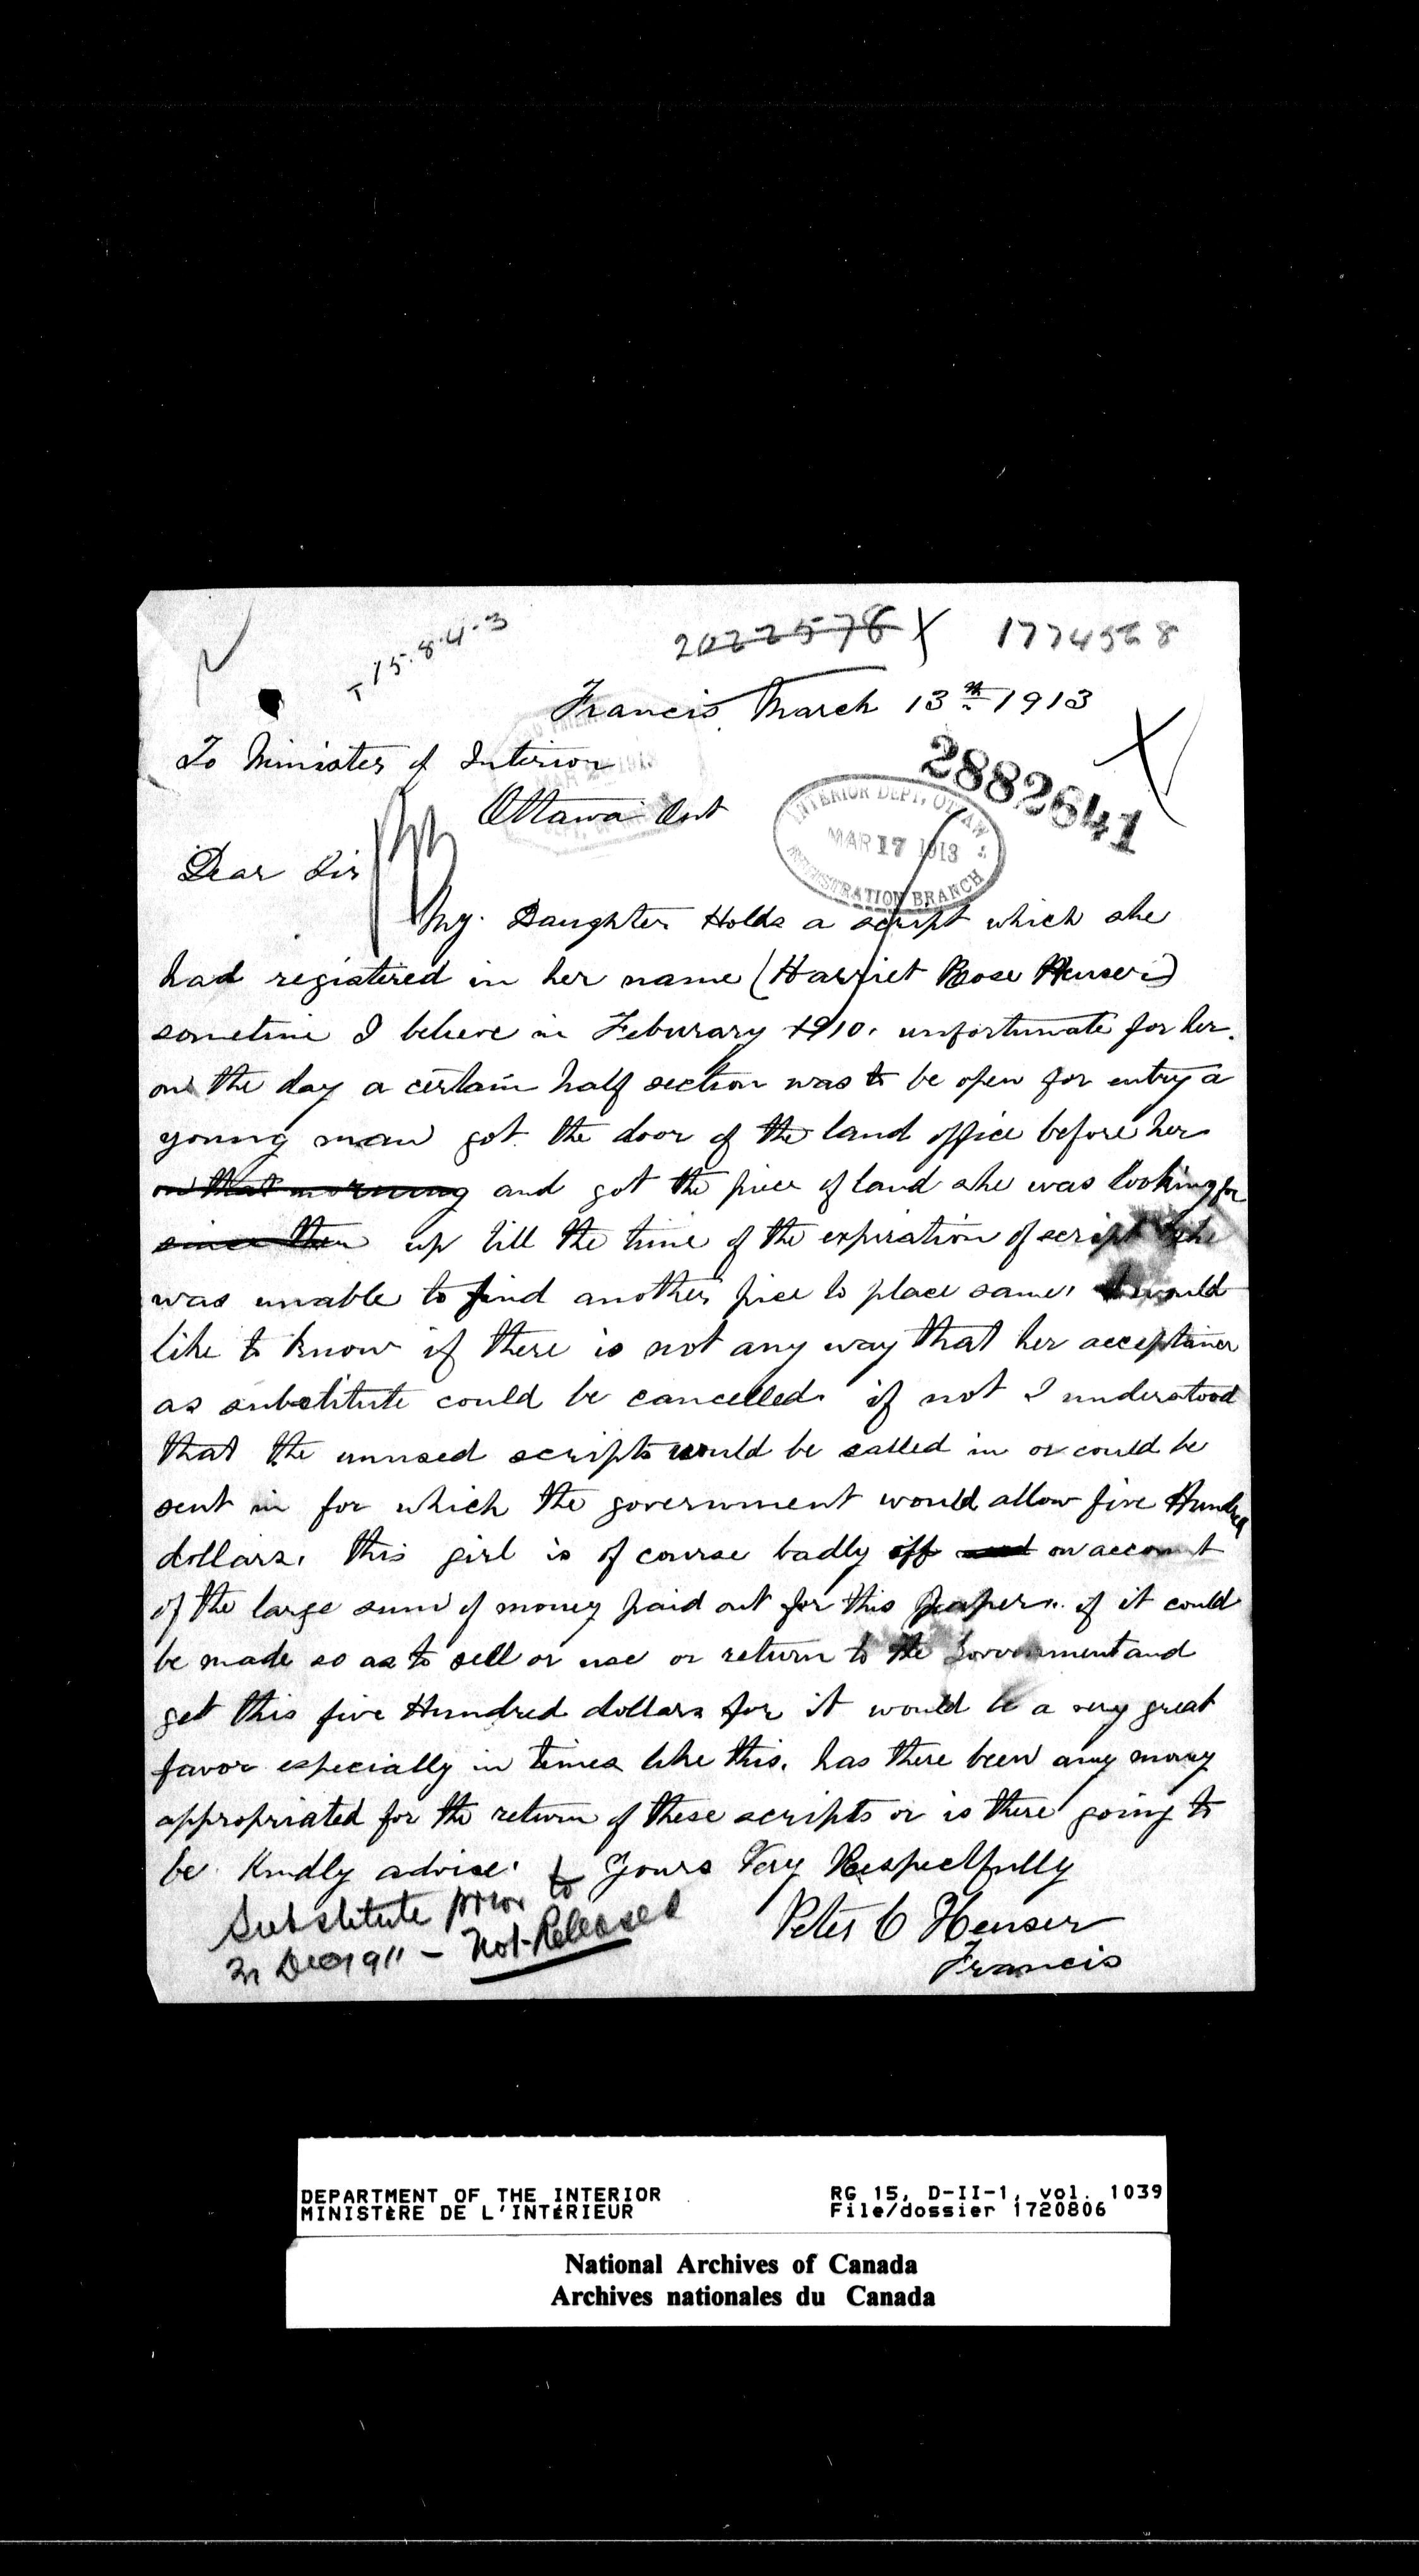 T 15.8.4.3
2022578 X 1774528
Francis, March 13th 1913
To Minister of Interior
MAR 1913
Ottawa Ont
2882641
INTERIOR DEPT, OTTAWA
MAR 17 1913
REGISTRATION BRANCH
Dear Sir
My Daughter Holds a script which she
had registered in her name (Harriet Rose Henser)
sometime I believe in Feburary 1910. unfortunate for her.
on the day a certain half section was to be open for entry a
young man got the door of the land office before her
on that morning and got the piece of land she was looking for
since then up till the time of the expiration of script she
was unable to find another piece to place same. would
like to know if there is not any way that her acceptance
as substitute could be cancelled. if not I understood
that the unused scripts would be called in or could be
sent in for which the government would allow five Hundred
dollars. this girl is of course badly off on account
of the large sum of money paid out for this paper. if it could
be made so as to sell or use or return to the Government and
get this five Hundred dollars for it would be a very great
favor especially in times like this. has there been any money
appropriated for the return of these scripts or is there going to
be Kindly advise. Yours Very Respectfully
Substitute prior to
Peter C Henser
21 Dec 1911 - Not Released
Francis
DEPARTMENT OF THE INTERIOR RG 15, D-II-1, vol. 1039
MINISTÈRE DE L'INTÉRIEUR File/dossier 1720806
National Archives of Canada
Archives nationales du Canada